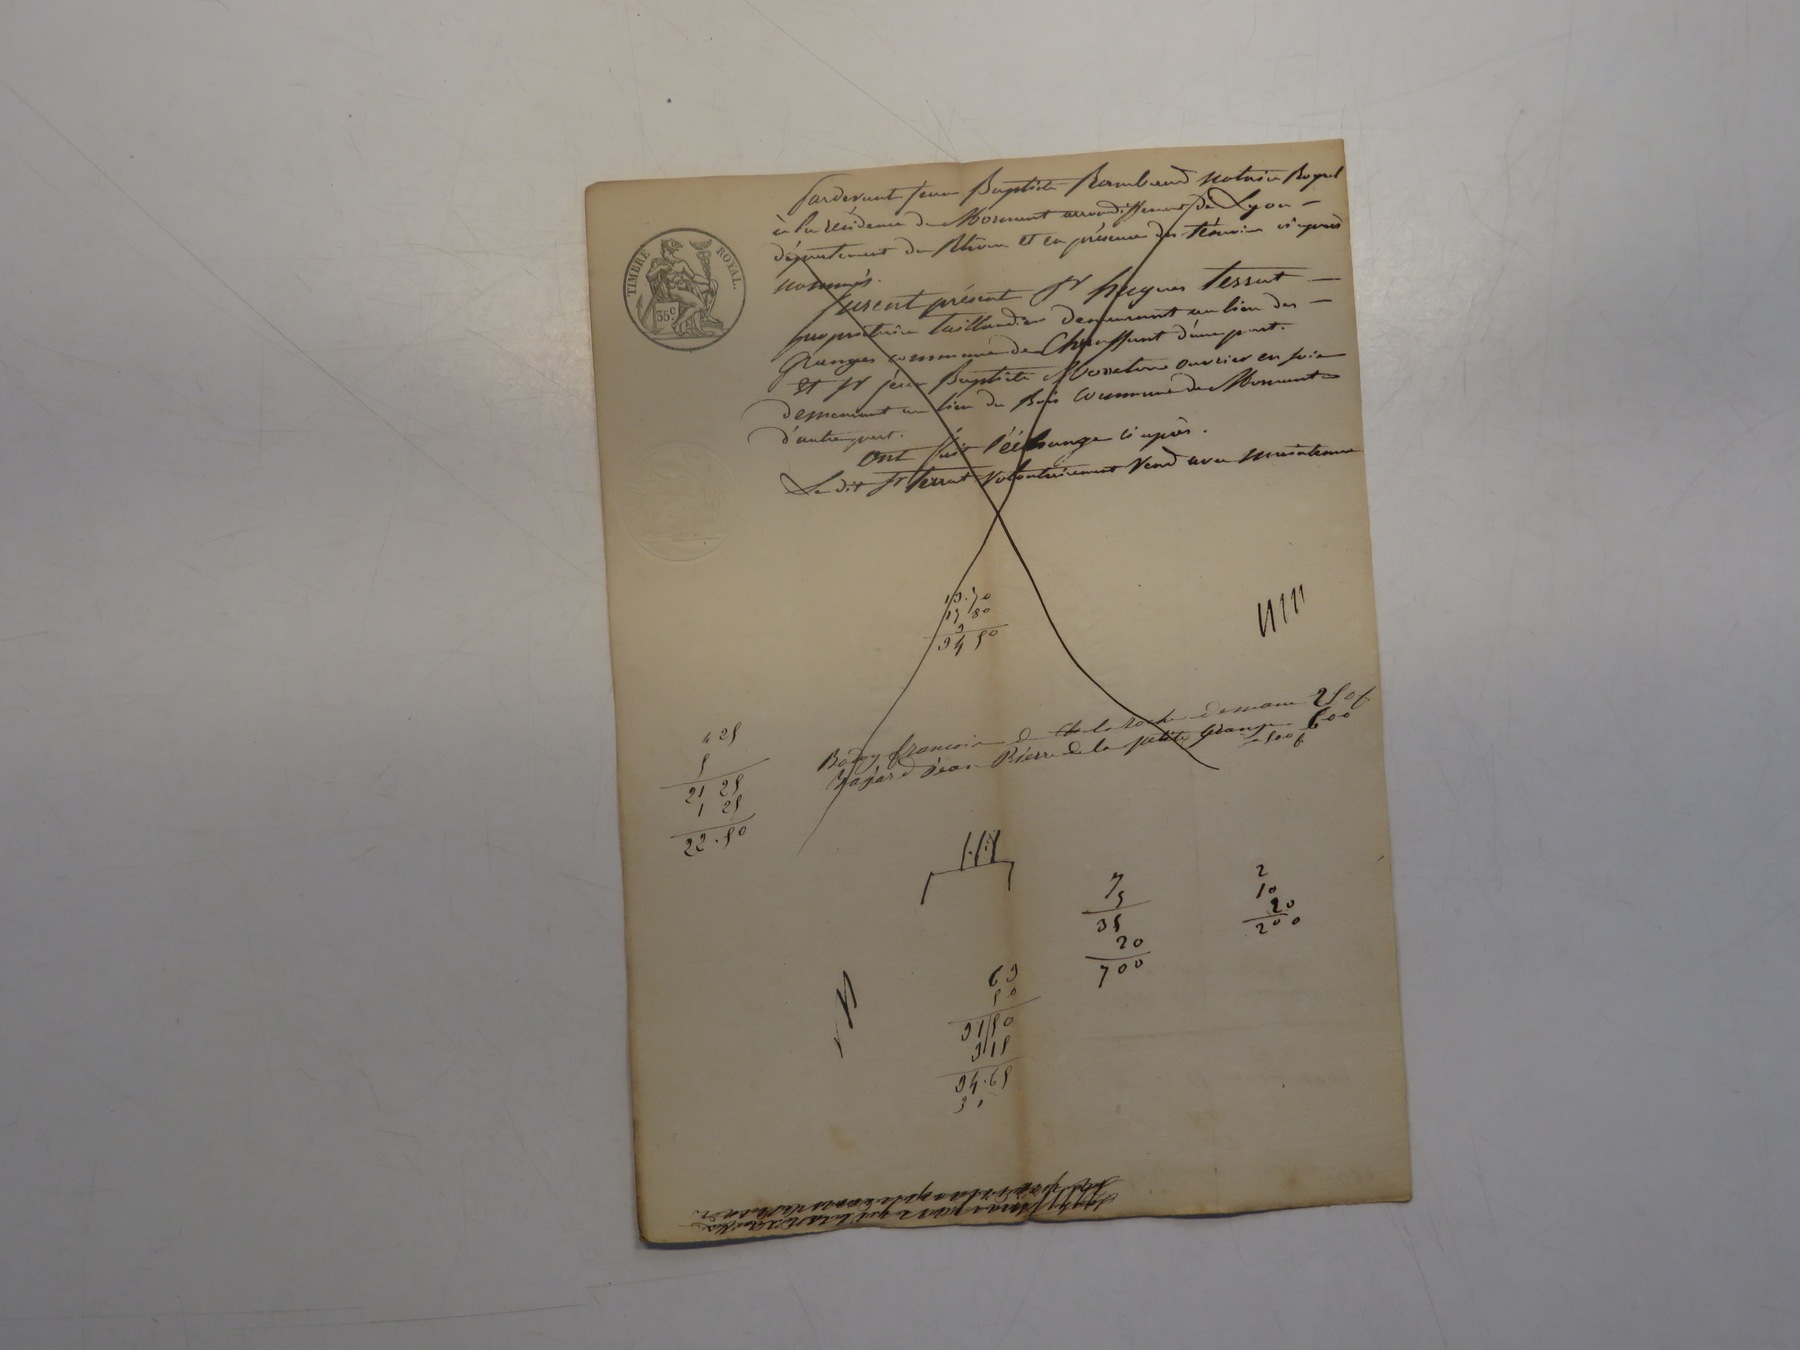 TIMBRE ROYAL.
35 c
Pardevant jean Baptiste Rambaud notaire Royal
à la résidence de Mornant arrondissement de Lyon –
département du Rhône et en présence des témoins ci après
nommés.
furent présent Sr jacques Terrat –
propriétaire taillandier demeurant au lieu des –
Granges commune de Chaussant d'une part.
Et Sr jean Baptiste ouvrier en soie
demeurant au lieu du Bois commune de Mornant –
d'autre part.
Ont fait l'échange ci après.
Le dit Sr Terrat volontairement vend avec maintenue
19.70
17 80
34 50
4 25
5
21 25
1 25
22.50
francois d la roche demane 250 f
jean Pierre de la petite Grange 600
7
5
35
20
700
2
10
20
200
63
50
31|50
3|15
34.65
3